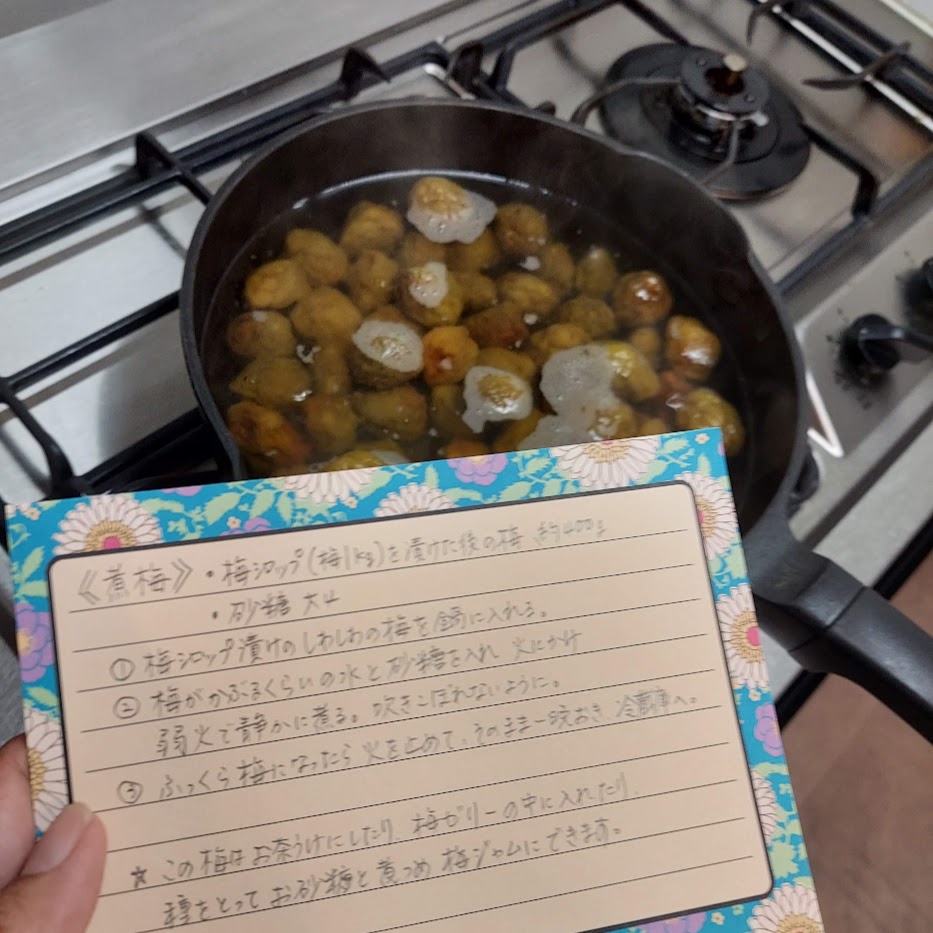 《煮梅》・梅シロップ(梅1kg)を漬けた後の梅 約400g
・砂糖 大4
① 梅シロップ漬けのしわしわの梅を鍋に入れる。
② 梅がかぶるくらいの水と砂糖を入れ 火にかけ
弱火で静かに煮る。吹きこぼれないように。
③ ふっくら梅になったら 火をとめて、そのまま一晩おき、冷蔵庫へ。
☆ この梅はお茶うけにしたり、梅ゼリーの中に入れたり、
種をとってお砂糖と煮つめ 梅ジャムにできます。